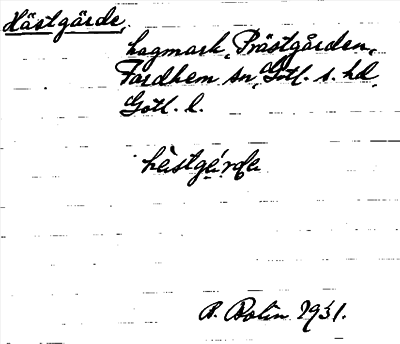 Hästgärde,
hagmark, Prästgården,
Fardhem sn, Gotl. s. hd,
Gotl. l.
hästgärde
B. Bolin 1931.